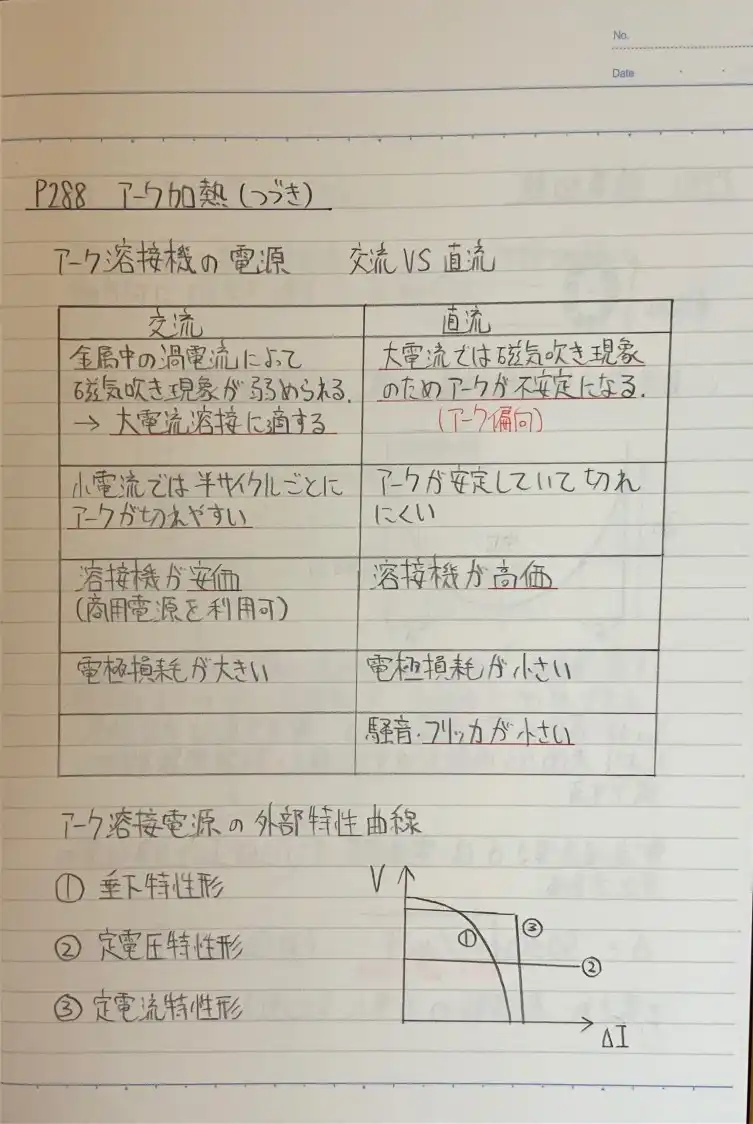 No.
Date
P288 アーク加熱(つづき)
アーク溶接機の電源 交流 VS 直流
交流
直流
金属中の渦電流によって
磁気吹き現象が弱められる.
→ 大電流溶接に適する
大電流では磁気吹き現象
のためアークが不安定になる.
(アーク偏向)
小電流では半サイクルごとに
アークが切れやすい
アークが安定していて切れ
にくい
溶接機が安価
(商用電源を利用可)
溶接機が高価
電極損耗が大きい
電極損耗が小さい
騒音・フリッカが小さい
アーク溶接電源の外部特性曲線
① 垂下特性形
② 定電圧特性形
③ 定電流特性形
V
①
③
②
ΔI